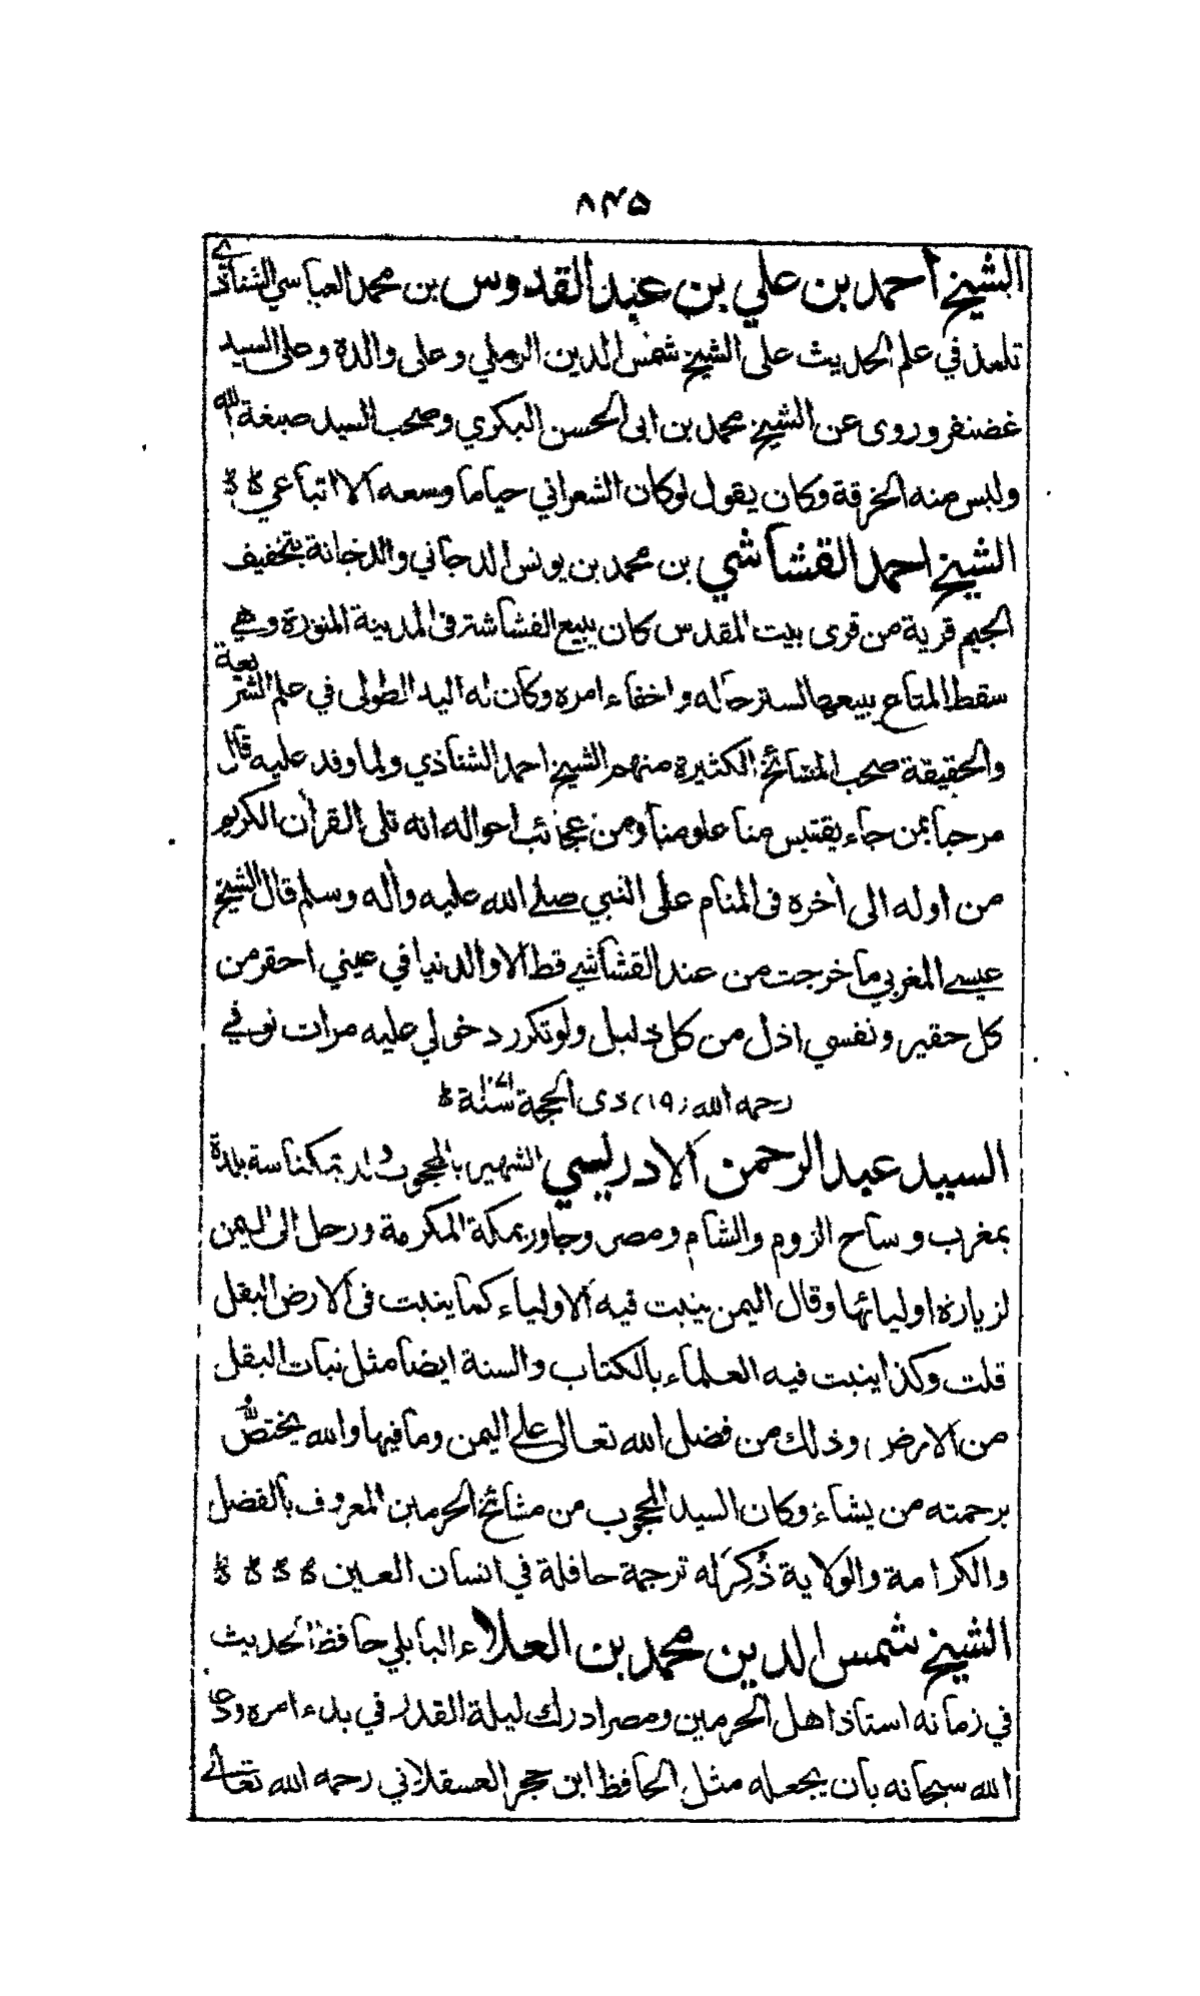 ۸۴۵
الشيخ احمد بن علي بن عبد القدوس بن محمد العباسي الشناوي
تلمذ في علم الحديث على الشيخ شمس الدين الرملي وعلى والدة وعلى السيد
غضنفر وروى عن الشيخ محمد بن ابى الحسن البكري وصحب السيد صبغة الله
ولبس منه الخرقة وكان يقول لو كان الشعراني حيا ما وسعه الا اتباعي
الشيخ احمد القشاشي بن محمد بن يونس الدجاني والدجانة بتخفيف
الجيم قرية من قرى بيت المقدس كان يبيع القشاشة فى المدينة المنورة وهي
سقط المتاع يبيعها لستر حاله واخفاء امره وكان له اليد الطولى في علم الشريعة
والحقيقة صحب المشائخ الكثيرة منهم الشيخ احمد الشناذي ولما وفد عليه قال
مرحبا بمن جاء يقتبس منا علومنا ومن عجائب احواله انه تلى القران الكريم
من اوله الى أخره فى المنام على النبي صلے الله عليه وأله وسلم قال الشيخ
عيسے المغربي ما خرجت من عند القشاشے قط الا والدنيا في عيني احقر من
كل حقير ونفسي اذل من كل ذليل ولو تكرر دخولي عليه مرات توفي
رحمه الله (۱۹) ذى الحجة سنة
السيد عبد الرحمن الادريسي الشهير بالمحجوب ولد بمكناسة بلدة
بمغرب وساح الروم والشام ومصر وجاور بمكة المكرمة ورحل الى اليمن
لزيارة اوليائها وقال اليمن ينبت فيه الاولياء كما ينبت فى الارض البقل
قلت وكذا ينبت فيه العلماء بالكتاب والسنة ايضا مثل نبات البقل
من الارض وذلك من فضل الله تعالى علے اليمن وما فيها والله يختص
برحمته من يشاء وكان السيد المحجوب من مشائخ الحرمين المعروف بالفضل
والكرامة والولاية ذُكِرَ له ترجمة حافلة في انسان العين
الشيخ شمس الدين محمد بن العلاء البابلي حافظ الحديث
في زمانه استاذ اهل الحرمين ومصر ادرك ليلة القدر في بدء امره ودعا
الله سبحانه بان يجعله مثل الحافظ ابن حجر العسقلاني رحمه الله تعالى